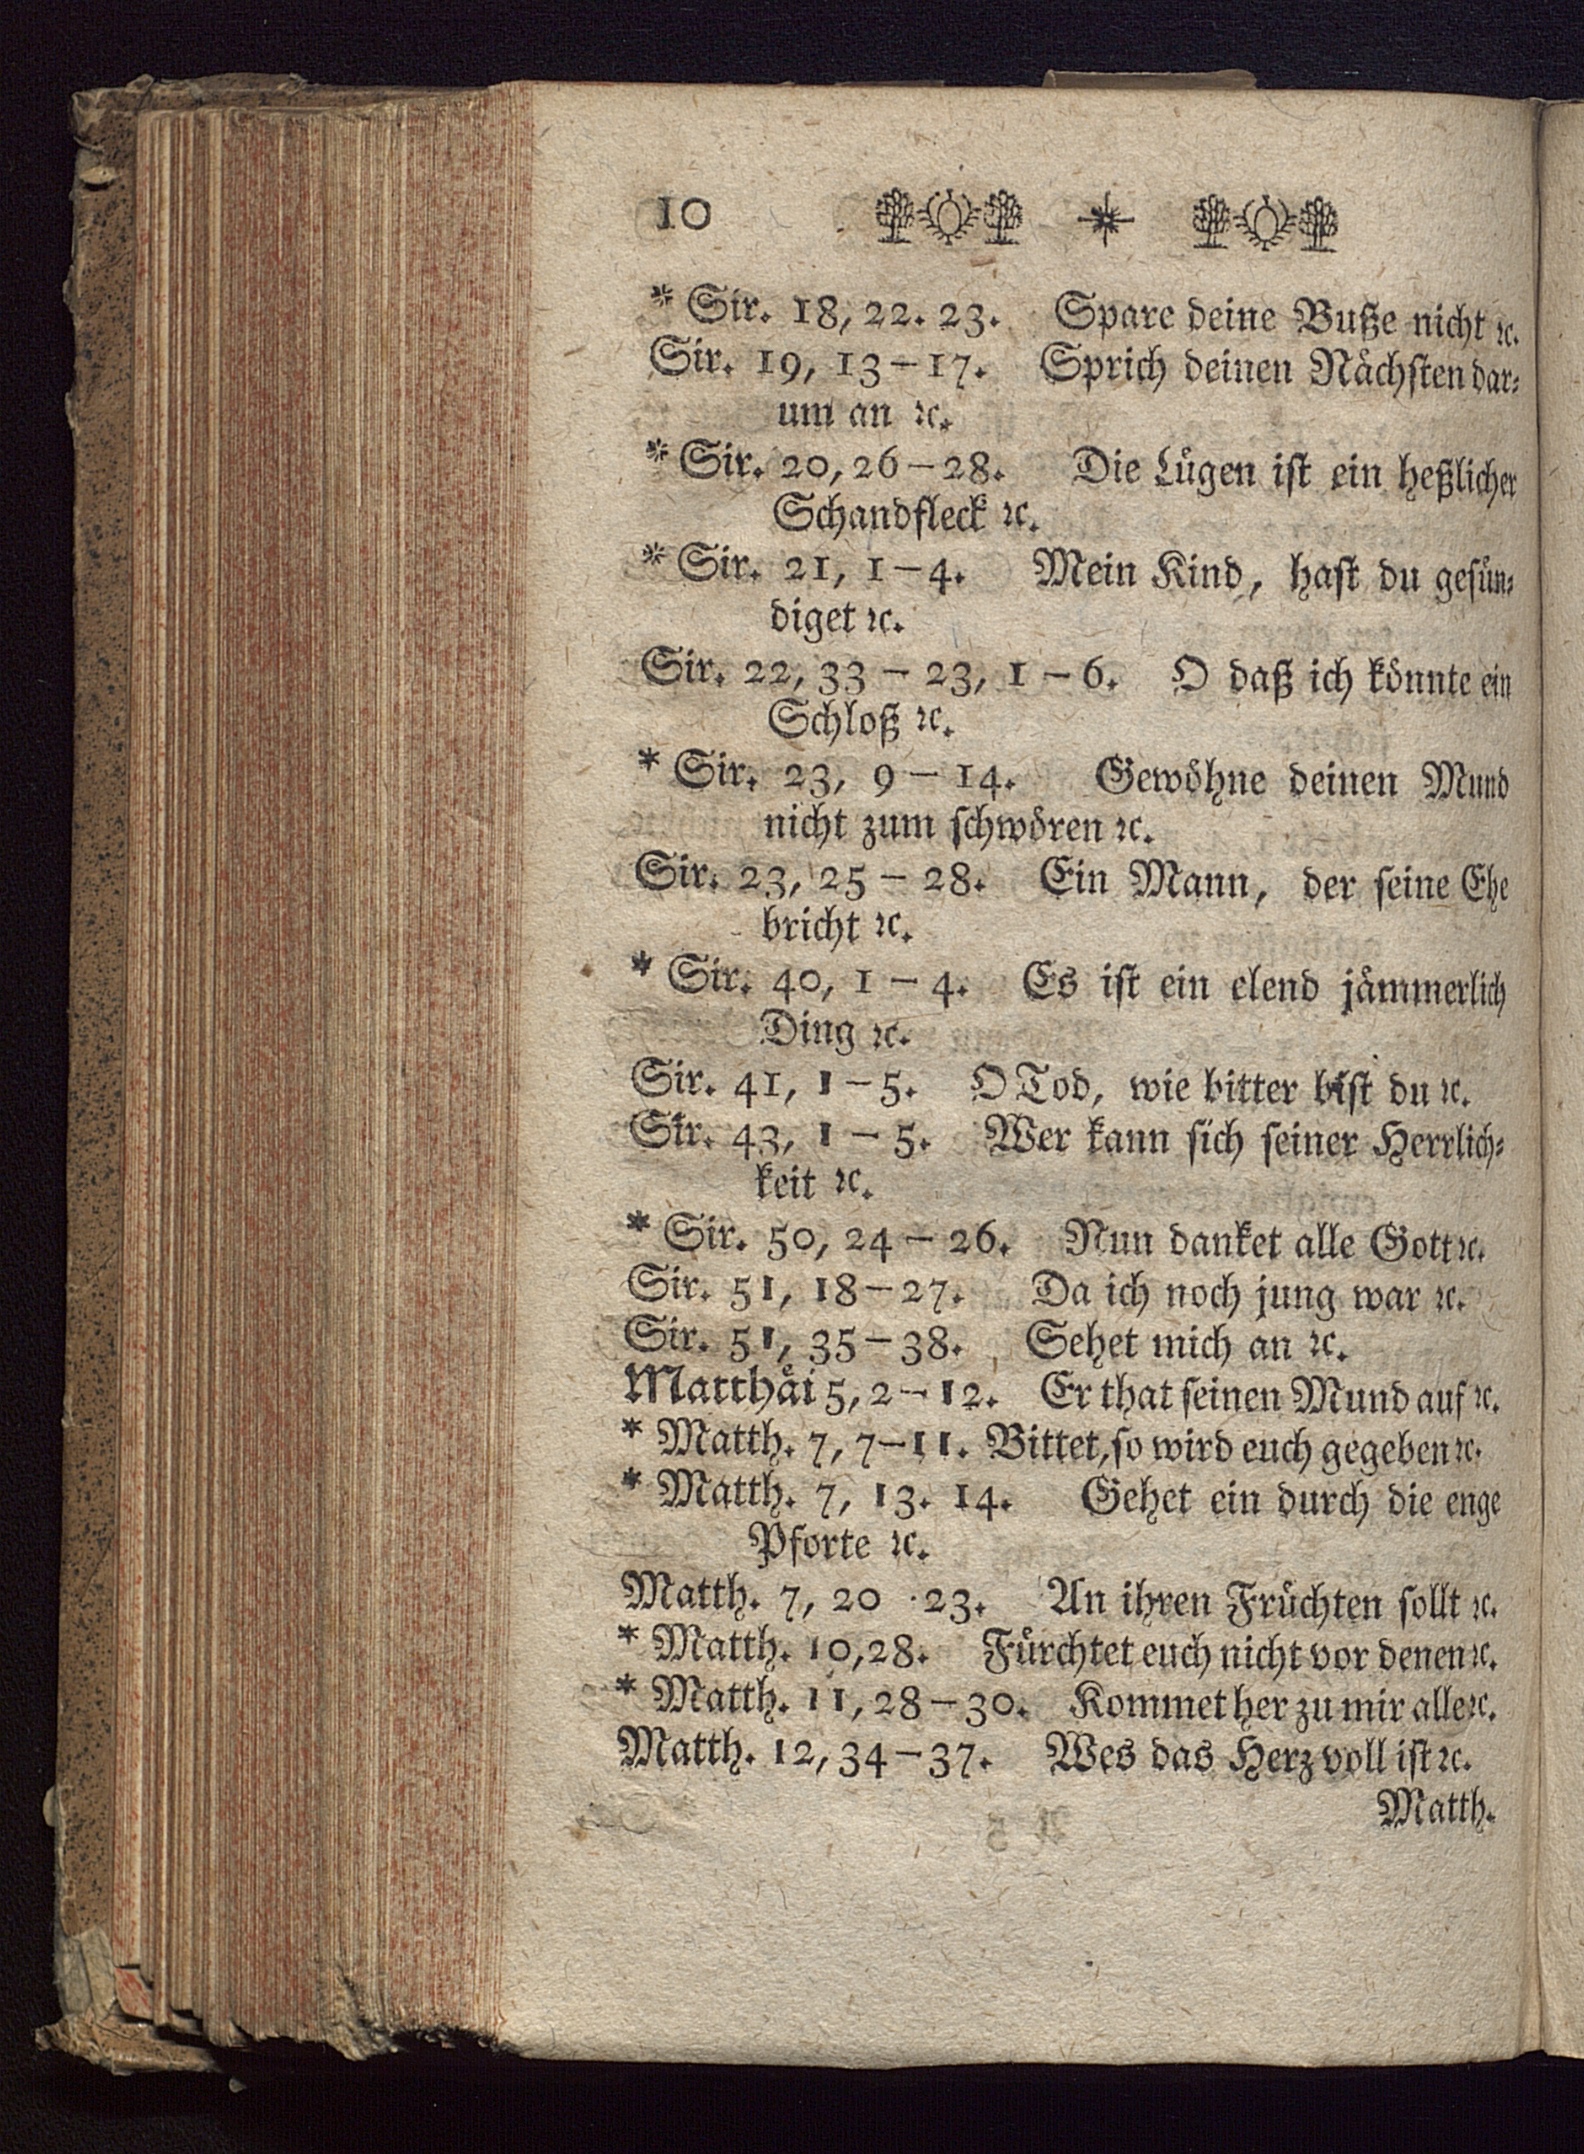 10
* Sir. 18, 22. 23. Spare deine Buße nicht ꝛc.
Sir. 19, 13 – 17. Sprich deinen Nächsten dar⸗
um an ꝛc.
* Sir. 20, 26 – 28. Die Lügen ist ein heßlicher
Schandfleck ꝛc.
* Sir. 21, 1 – 4. Mein Kind, hast du gesün⸗
diget ꝛc.
Sir. 22, 33 – 23, 1 – 6. O daß ich könnte ein
Schloß ꝛc.
* Sir. 23, 9 – 14. Gewöhne deinen Mund
nicht zum schwören ꝛc.
Sir. 23, 25 – 28. Ein Mann, der seine Ehe
bricht ꝛc.
* Sir. 40, 1 – 4. Es ist ein elend jämmerlich
Ding ꝛc.
Sir. 41, 1 – 5. O Tod, wie bitter bist du ꝛc.
Sir. 43, 1 – 5. Wer kann sich seiner Herrlich⸗
keit ꝛc.
* Sir. 50, 24 – 26. Nun danket alle Gott ꝛc.
Sir. 51, 18 – 27. Da ich noch jung war ꝛc.
Sir. 51, 35 – 38. Sehet mich an ꝛc.
Matthäi 5, 2 – 12. Er that seinen Mund auf ꝛc.
* Matth. 7, 7 – 11. Bittet, so wird euch gegeben ꝛc.
* Matth. 7, 13. 14. Gehet ein durch die enge
Pforte ꝛc.
Matth. 7, 20 · 23. An ihren Früchten sollt ꝛc.
* Matth. 10, 28. Fürchtet euch nicht vor denen ꝛc.
* Matth. 11, 28 – 30. Kommet her zu mir alle ꝛc.
Matth. 12, 34 – 37. Wes das Herz voll ist ꝛc.
Matth.